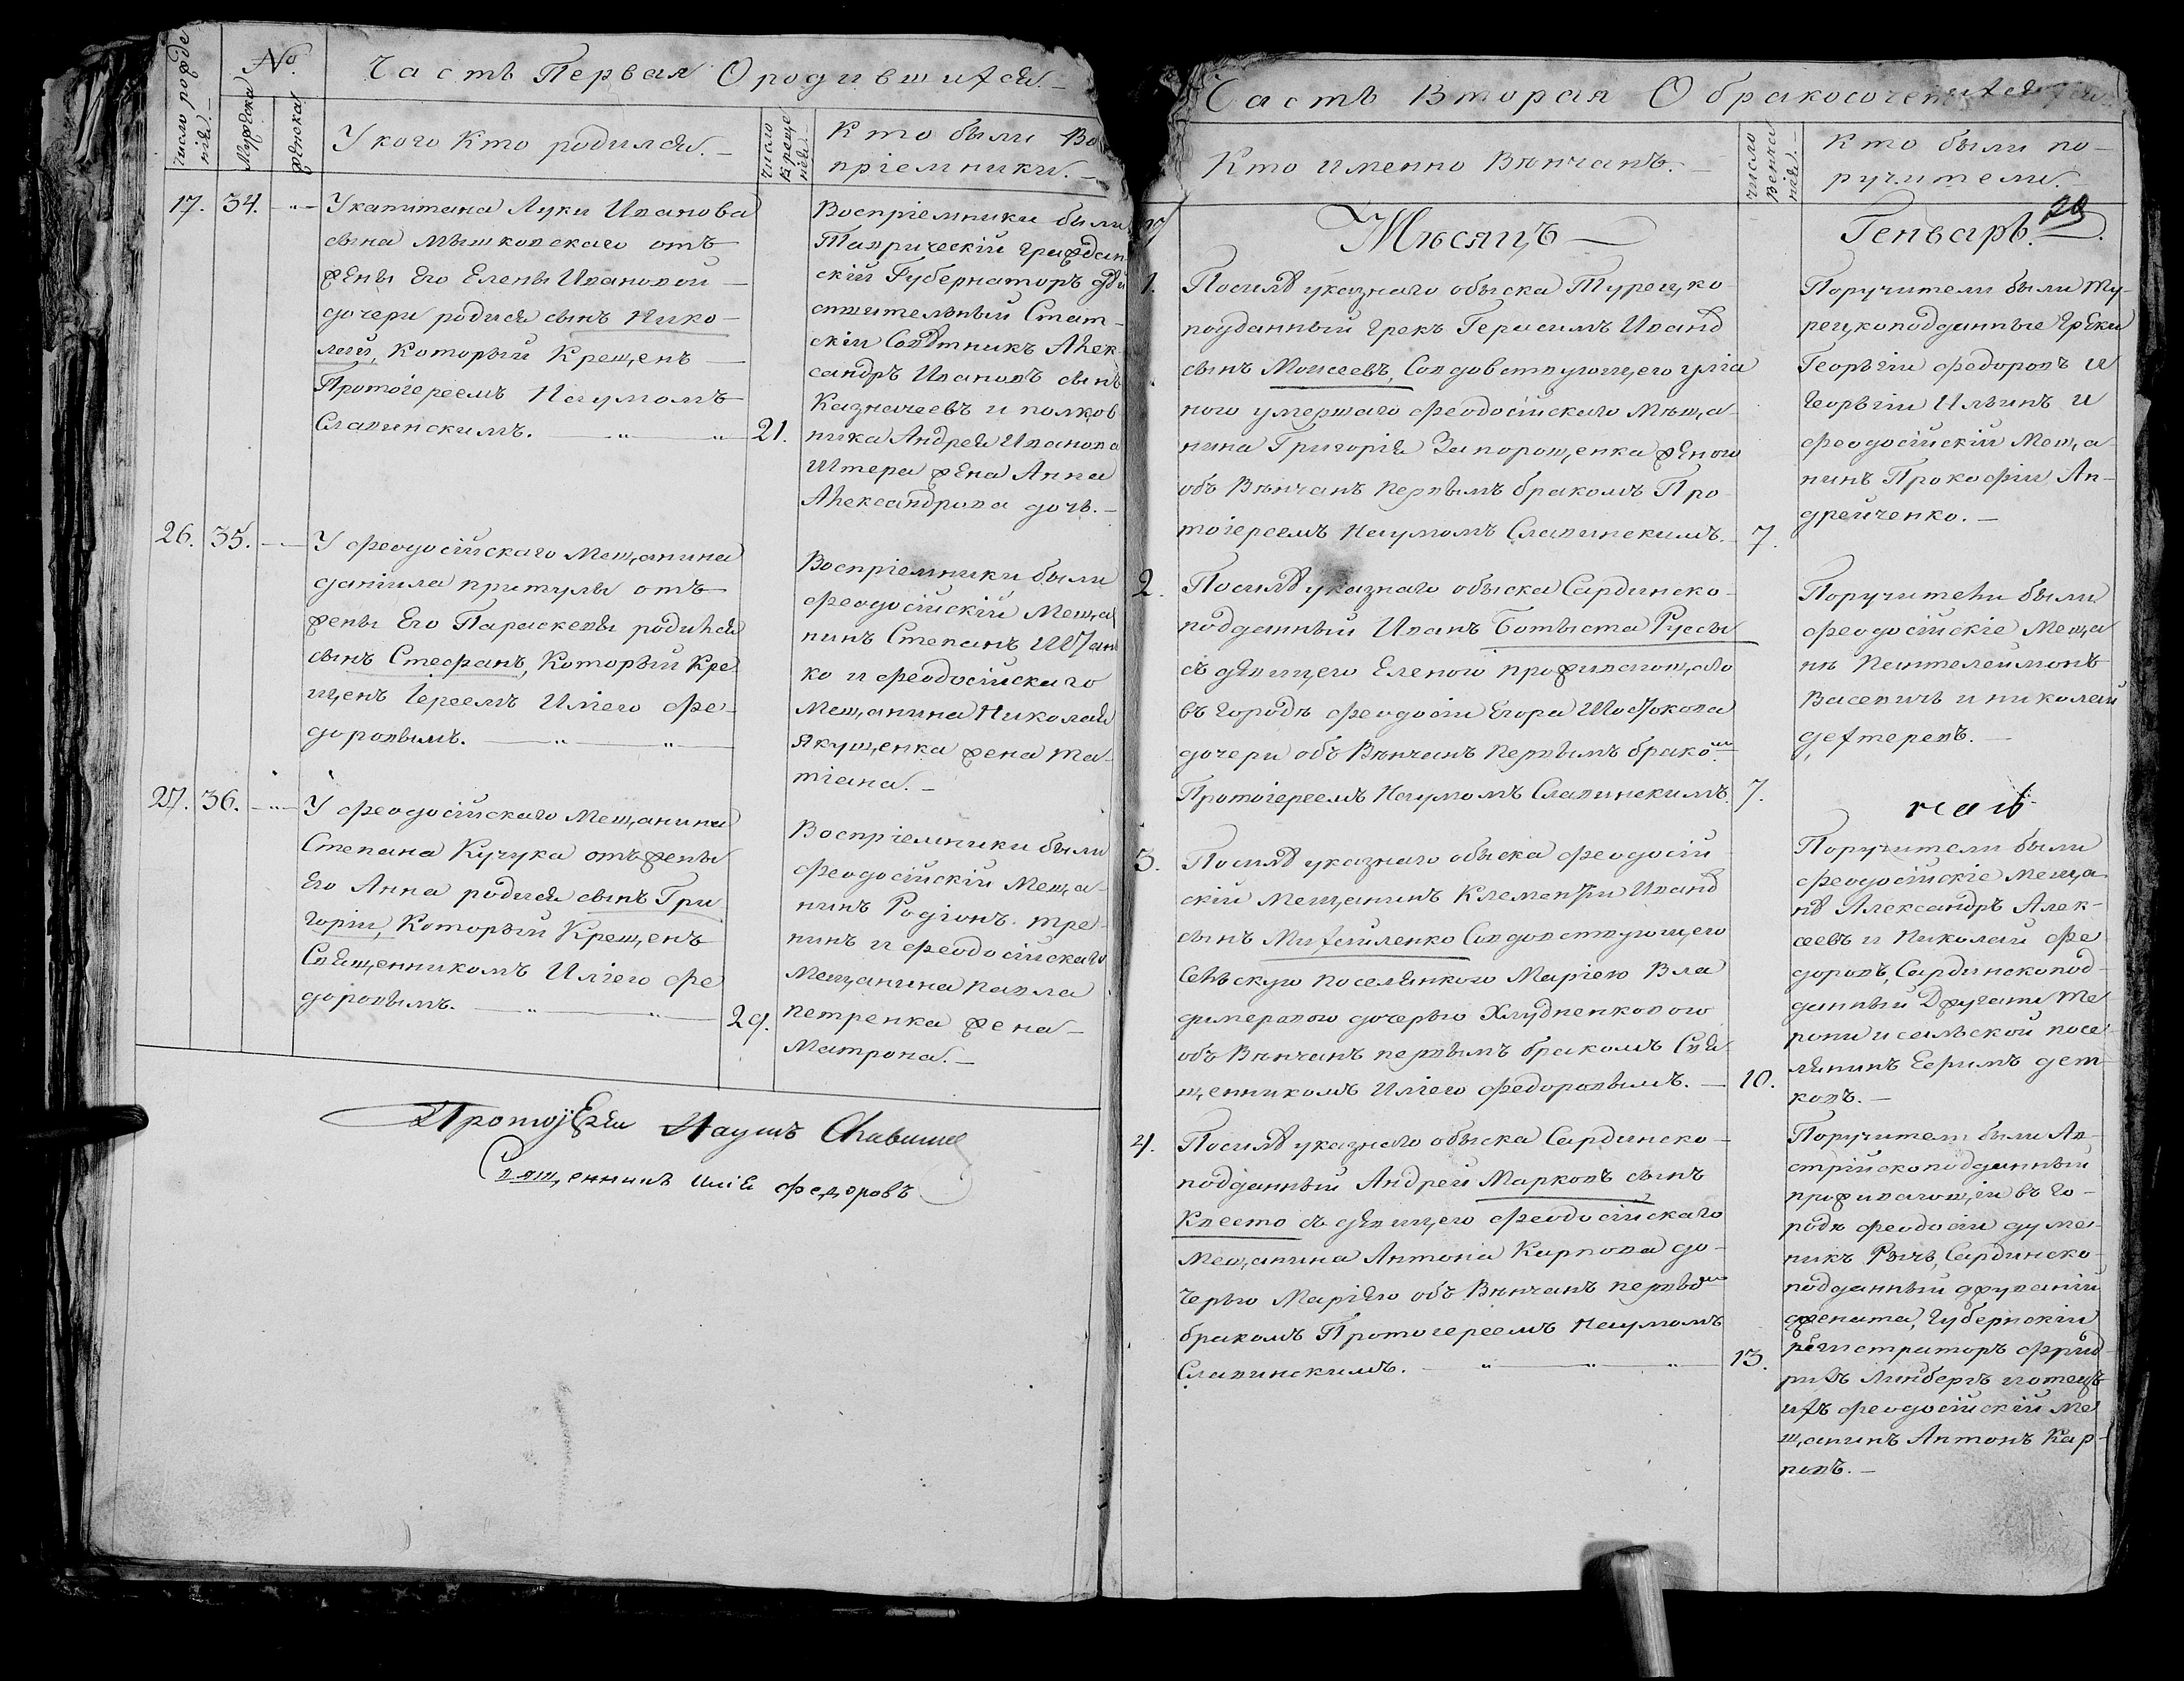 Часть Первая О родившихся.
Число рожде
нія.
№.
Мужеска
женска
У кого кто родился.
Число
креще
нія.
Кто были Во
пріемники.
17. 34.
У капитана Луки Иванова
сына Мышковскаго отъ
жены Его Елены Ивановой
дочери родися сынъ Нико-
лай, который крещенъ
Протоіереемъ Наумомъ
Славинскимъ.
21.
Воспріемники были
Таврическій граждан
скій Губернаторъ дѣй
ствительный Стат-
скій Совѣтникъ Алек
сандръ Ивановъ сынъ
Казначеевъ и полков
ника Андрея Иванова
Штера жена Анна
Александрова дочь.
26. 35.
У феодосійскаго Мещанина
даніила притулы отъ
жены Его Параскевы родился
сынъ Стефанъ, который кре
щенъ Іереемъ Иліею фе-
доровымъ.
Воспріемники были
феодосійскій Меща
нинъ Степанъ
ко и феодосійскаго
Мещанина Николая
Якущенка жена та-
тіана.
27. 36.
У феодосійскаго Мещанина
Степана Кучука отъ жены
Его Анна родися сынъ Гри
горій, который крещенъ
Священникомъ Иліею фе
доровымъ.
29.
Воспріемники были
феодосійскій Меща-
нинъ Родіонъ тре-
нинъ и феодосійскаго
Мещанина павла
петренка жена
Матрона.
Протоіерей Наумъ Славинс
Священникъ Илія федоровъ
Часть Вторая О бракосочет
Кто именно Вѣнчанъ.
Число
венча
нія.
Кто были по-
ручители.
20
Мѣсяцъ
Генварь.
1.
Послѣ указнаго обыска Турецко
подданный грекъ Герасимъ Иванѣ
сынъ Моисеевъ, Совдовствующею
ною умершаго феодосійскаго Мѣща-
нина Григорія Запорощенка женою
обѣ Вѣнчанъ первымъ бракомъ Про
тоіереемъ Наумомъ Славинскимъ.
7.
Поручители были ту-
рецкоподданные Греки
Георгій федоровъ и
Георгій Ильинъ и
феодосійскій Меща-
нинъ Прокофій Ан-
дрейченко.
2.
Послѣ указнаго обыска Сардинско-
подданный Иванъ Ботыста Руссы
съ дѣвицею Еленою проживающаго
въ городѣ феодосіи Егора
дочери обѣ Вѣнчанъ первымъ брако.м
Протоіереемъ Наумомъ Славинскимъ.
7.
Поручители были
феодосійскіе Меща
нѣ Пантелеймонъ
Васевичъ и николай
дехтеревъ.
3.
Послѣ указнаго обыска феодосій
скій Мещанинъ Климентій Иванѣ
сынъ Михайленко Совдовствующею
Сельскую поселянкою Маріею Вла
димеровою дочерью Хлудненковою
обѣ Вѣнчанъ первымъ бракомъ Свя
щенникомъ Иліею федоровымъ.
10.
Поручители были
феодосійскіе Меща
нѣ Александръ Алек-
сеевъ и Николай фе
доровъ, Сардинскопод-
данный Джувани Же
рони и сельской посе
лянинъ Ефимъ дет
ковъ.
4.
Послѣ указнаго обыска Сардинско-
подданный Андрей Марковъ сынъ
Квесто съ дѣвицею феодосійскаго
Мещанина Антона Карпова до-
черью Маріею обѣ Вѣнчанъ первым
бракомъ Протоіереемъ Наумомъ
Славинскимъ.
13.
Поручители были Ав-
стрійскоподданный
проживающій въ го-
родѣ феодосіи думе-
никъ Рычъ, Сардинско-
подданный джуваній
джената, Губернскій
регистраторъ Фрид
рихъ Линбергъ и отецъ
ихъ феодосійскій Ме
щанинъ Антонъ Кар-
повъ.